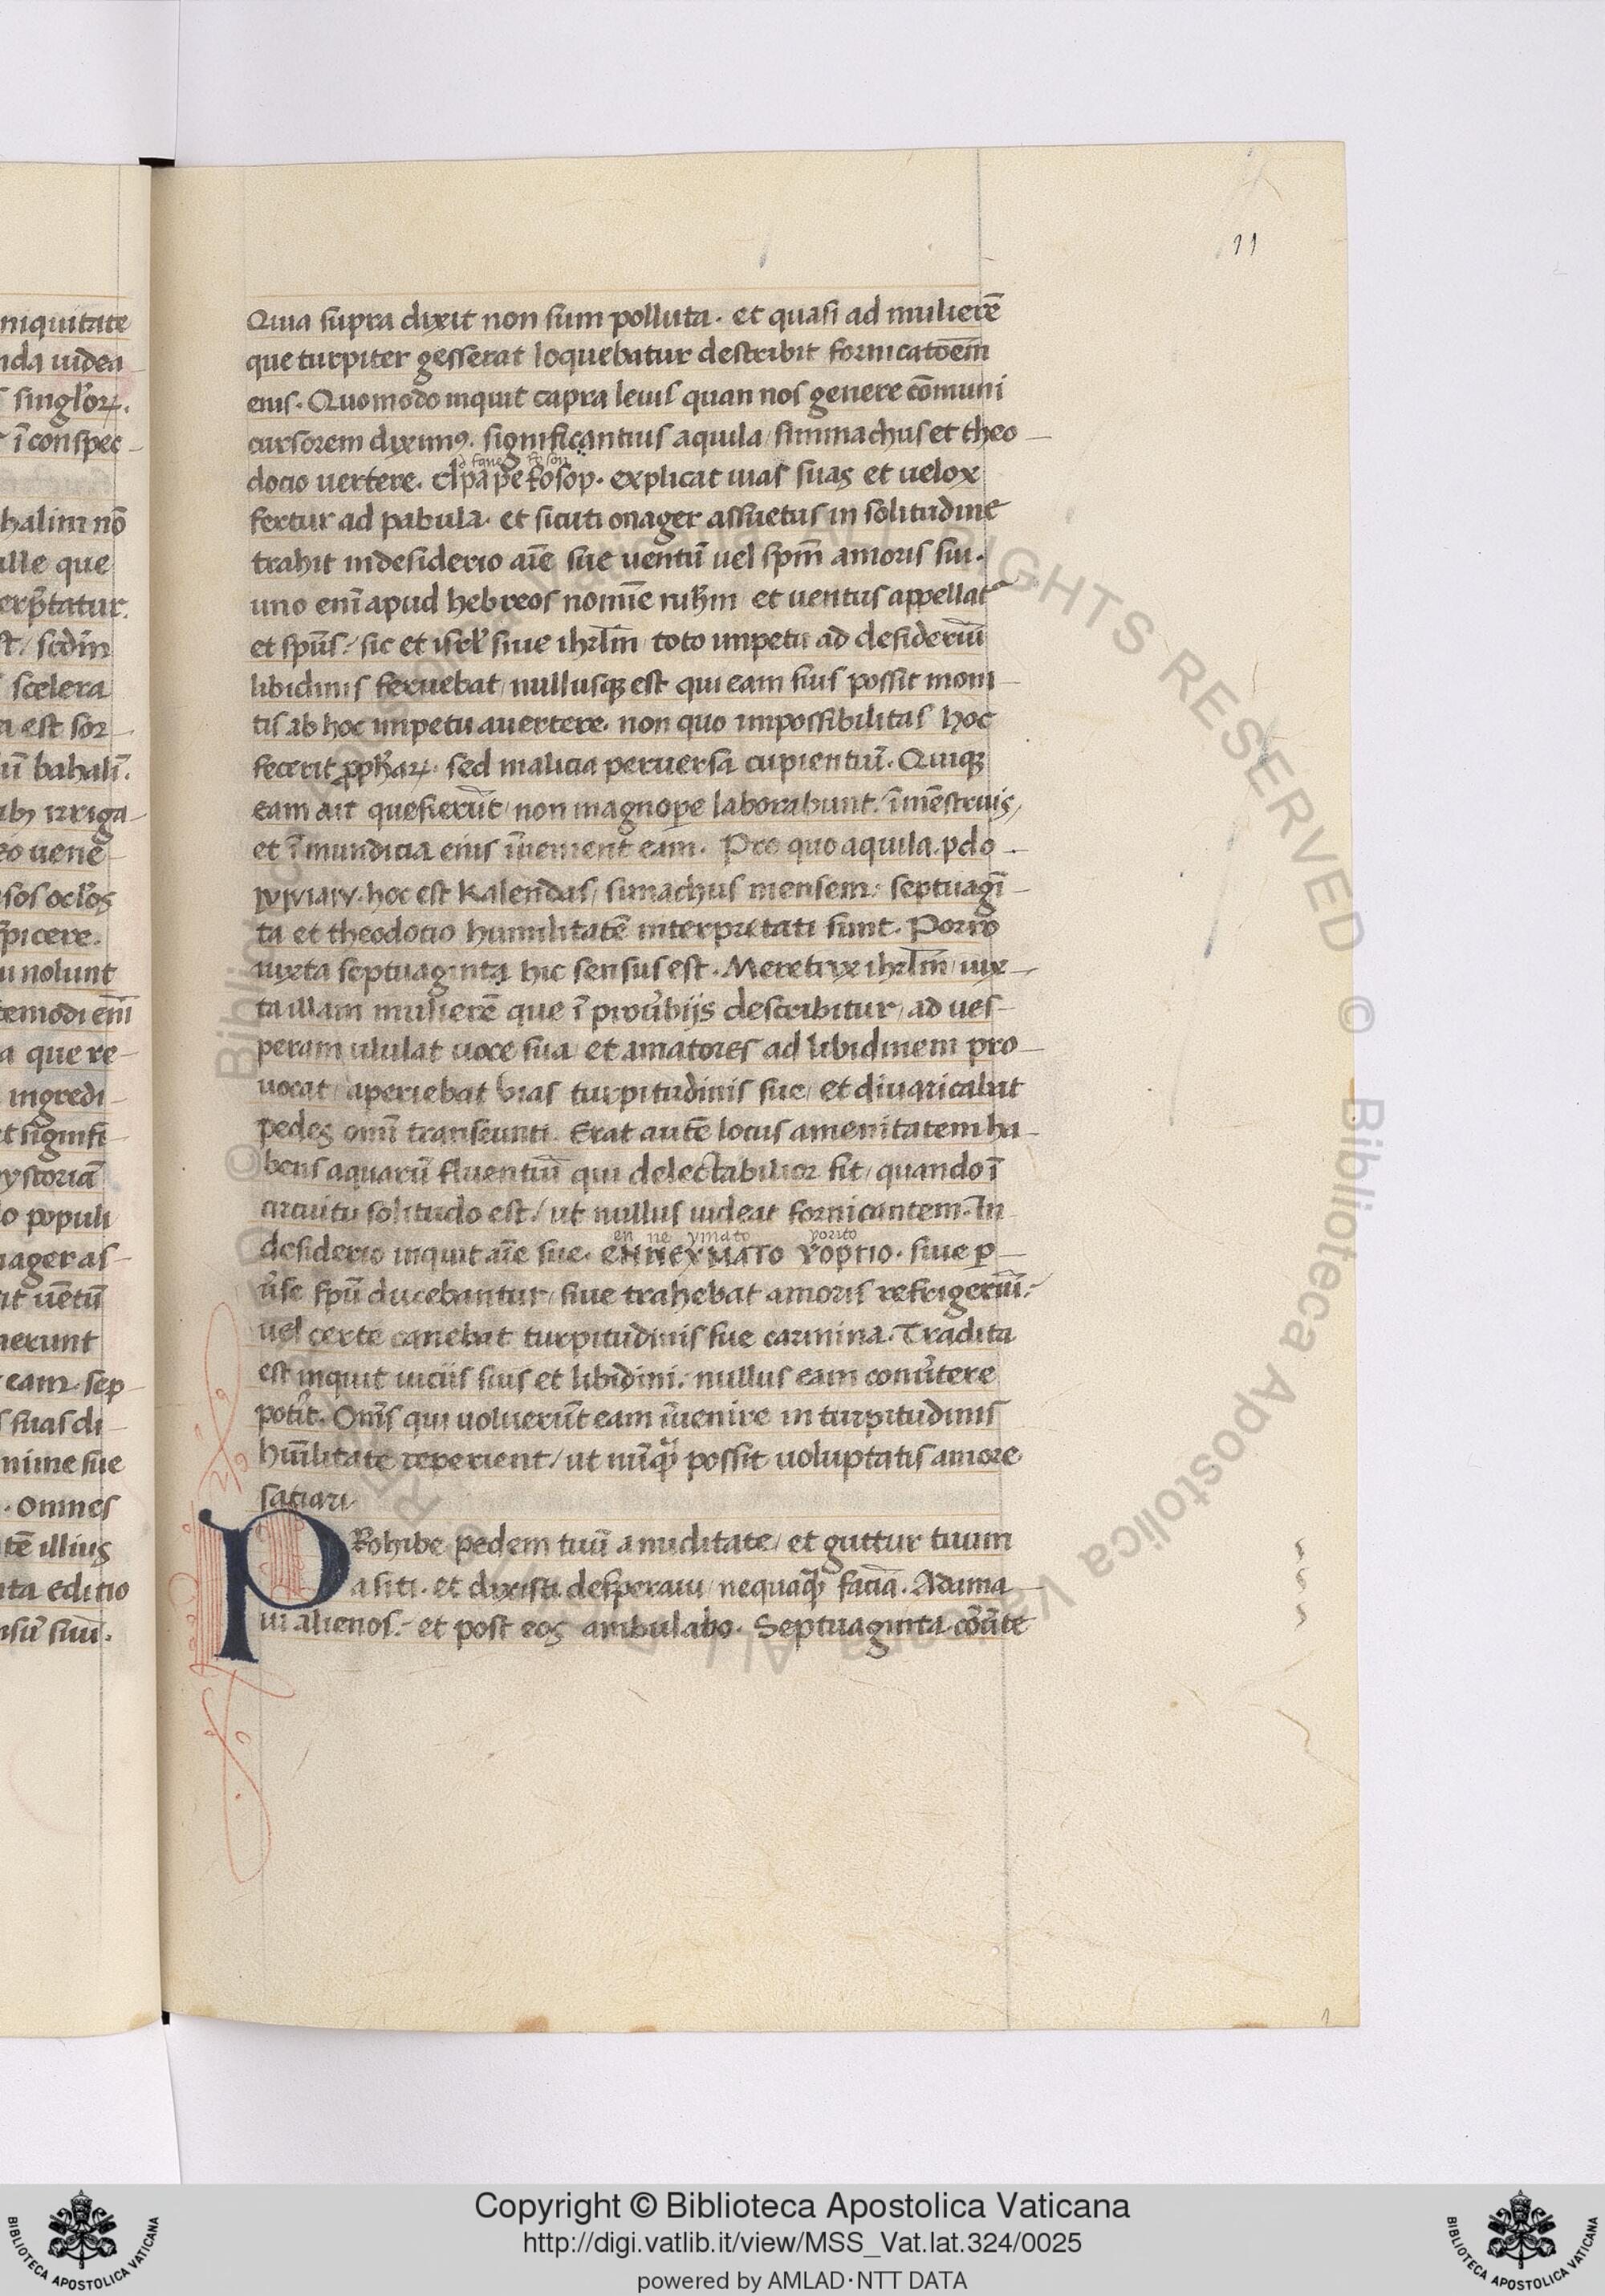 niquitate
nda uidea
singl'oꝝ.
ī conspec-
halim nō
ille que
erp̄tatur.
st / scdm̄
scelera
a est sor-
ū bahalī.
ib; irriga-
eo uene-
sos oclōs
spicere.
u nolunt
temodi eni᷈
a que re-
ingredi-
et signifi-
ystoriā
o populi
nager as-
it uētū
nerunt
eam. sep-
suas di-
nime sue
. omnes
tē illius
nta editio
nsū suū.
11
Quia supra dixit non sum polluta. et quasi ad mulierē
que turpiter gesserat loquebatur describit fornicatōem
eius. Quomodo inquit capra leuis quan nos genere cōmuni
cursorem diximꝰ. significantius aquila / simmachus et theo-
d fane fo son
docio uertere. clpape fosop. explicat uias suas et uelox
fertur ad pabula. et sicuti onager assuetus in solitudine
trahit indesiderio aīe sue uentū uel spm̄ amoris sui.
uno enī apud hebreos nomīe ruhm / et uentus appellat᷑
et spūs / sic et isrl' siue ihrlm̄ toto impetu ad desideriū
libidinis feruebat / nullusqꝫ est qui eam suis possit moni-
tis ab hoc impetu auertere. non quo impossibilitas hoc
fecerit ꝓph̄aꝝ. sed malicia peruersa cupientiū. Quiqꝫ
eam ait quesierūt / non magnoꝑe laborabunt / ī mēstruis /
et īmundicia eius īuenient eam. Pro quo aquila. pdo-
IVIVIAIV. hoc est kalendas / simachus mensem: septuagī-
ta et theodotio humilitatē interpretati sunt. Porro
iuxta septuaginta hic sensus est. Meretrix ihrlm̄ / iux-
ta illam mulierē que ī prou᷑bijs describitur / ad ues-
peram ululat uoce sua et amatores ad libidinem pro-
uocat / aperiebat uias turpitudinis sue / et diuaricabat
pedes omī transeunti. Erat autē locus amenitatem ha-
bens aquarū fluentiū qui delectabilior fit / quando ī
circuitu solitudo est / ut nullus uideat fornicantem. In
en ne ymato yorito
desiderio inquit aīe sue. eNNEYMATO YOPTIO. siue p-
u᷑se spū ducebantur / siue trahebat amoris refrigeriū:
uel certe canebat turpitudinis sue carmina. Tradita
est inquit uiciis suis et libidini. nullus eam conu᷑tere
pot᷑it. Om̄s qui uoluerūt eam īuenire in turpitudinis
hūilitate reperient / ut nūqͣꝫ possit uoluptatis amore
satiari
PRohibe pedem tuū a nuditate / et guttur tuum
a siti. et dixisti desperaui / nequaqꝫ faciā. Adama-
ui alienos: et post eos ambulabo. Septuaginta. cōu᷑te
Copyright © Biblioteca Apostolica Vaticana
http://digi.vatlib.it/view/MSS_Vat.lat.324/0025
powered by AMLAD·NTT DATA
BIBLIOTECA APOSTOLICA VATICANA
BIBLIOTECA APOSTOLICA VATICANA